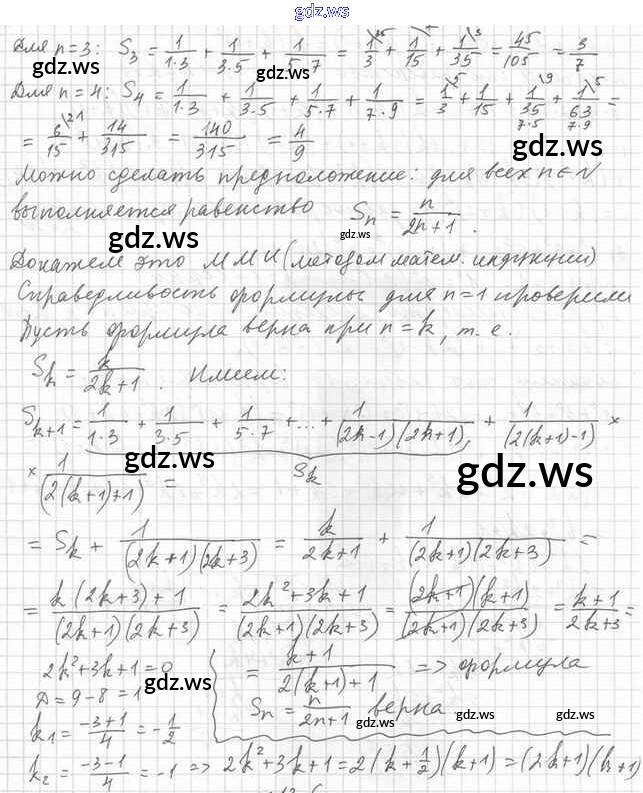 gdz.ws
Для n=3: S₃ = 1/(1·3) + 1/(3·5) + 1/(5·7) = 1/3 + 1/15 + 1/35 = 45/105 = 3/7
gdz.ws gdz.ws
Для n=4: S₄ = 1/(1·3) + 1/(3·5) + 1/(5·7) + 1/(7·9) = 1/3 + 1/15 + 1/35 + 1/63 =
7·5 7·9
= 6/15 + 14/315 = 140/315 = 4/9
gdz.ws
Можно сделать предположение: для всех n∈N
выполняется равенство Sₙ = n/(2n+1).
gdz.ws gdz.ws
Докажем это ММИ (методом матем. индукции)
Справедливость формулы для n=1 проверили
Пусть формула верна при n=k, т.е.
Sₖ = k/(2k+1). Имеем:
Sₖ₊₁ = 1/(1·3) + 1/(3·5) + 1/(5·7) + ... + 1/((2k-1)(2k+1)) + 1/(2(k+1)-1) ×
gdz.ws gdz.ws
× 1/(2(k+1)+1) =
Sₖ
= Sₖ + 1/((2k+1)(2k+3)) = k/(2k+1) + 1/((2k+1)(2k+3)) =
= (k(2k+3)+1)/((2k+1)(2k+3)) = (2k²+3k+1)/((2k+1)(2k+3)) = ((2k+1)(k+1))/((2k+1)(2k+3)) = (k+1)/(2k+3) =
2k²+3k+1=0
= (k+1)/(2(k+1)+1) => формула
Д=9-8=1
gdz.ws
Sₙ = n/(2n+1) верна
gdz.ws gdz.ws gdz.ws
k₁ = (-3+1)/4 = -1/2
k₂ = (-3-1)/4 = -1 => 2k²+3k+1=2(k+1/2)(k+1)=(2k+1)(k+1)